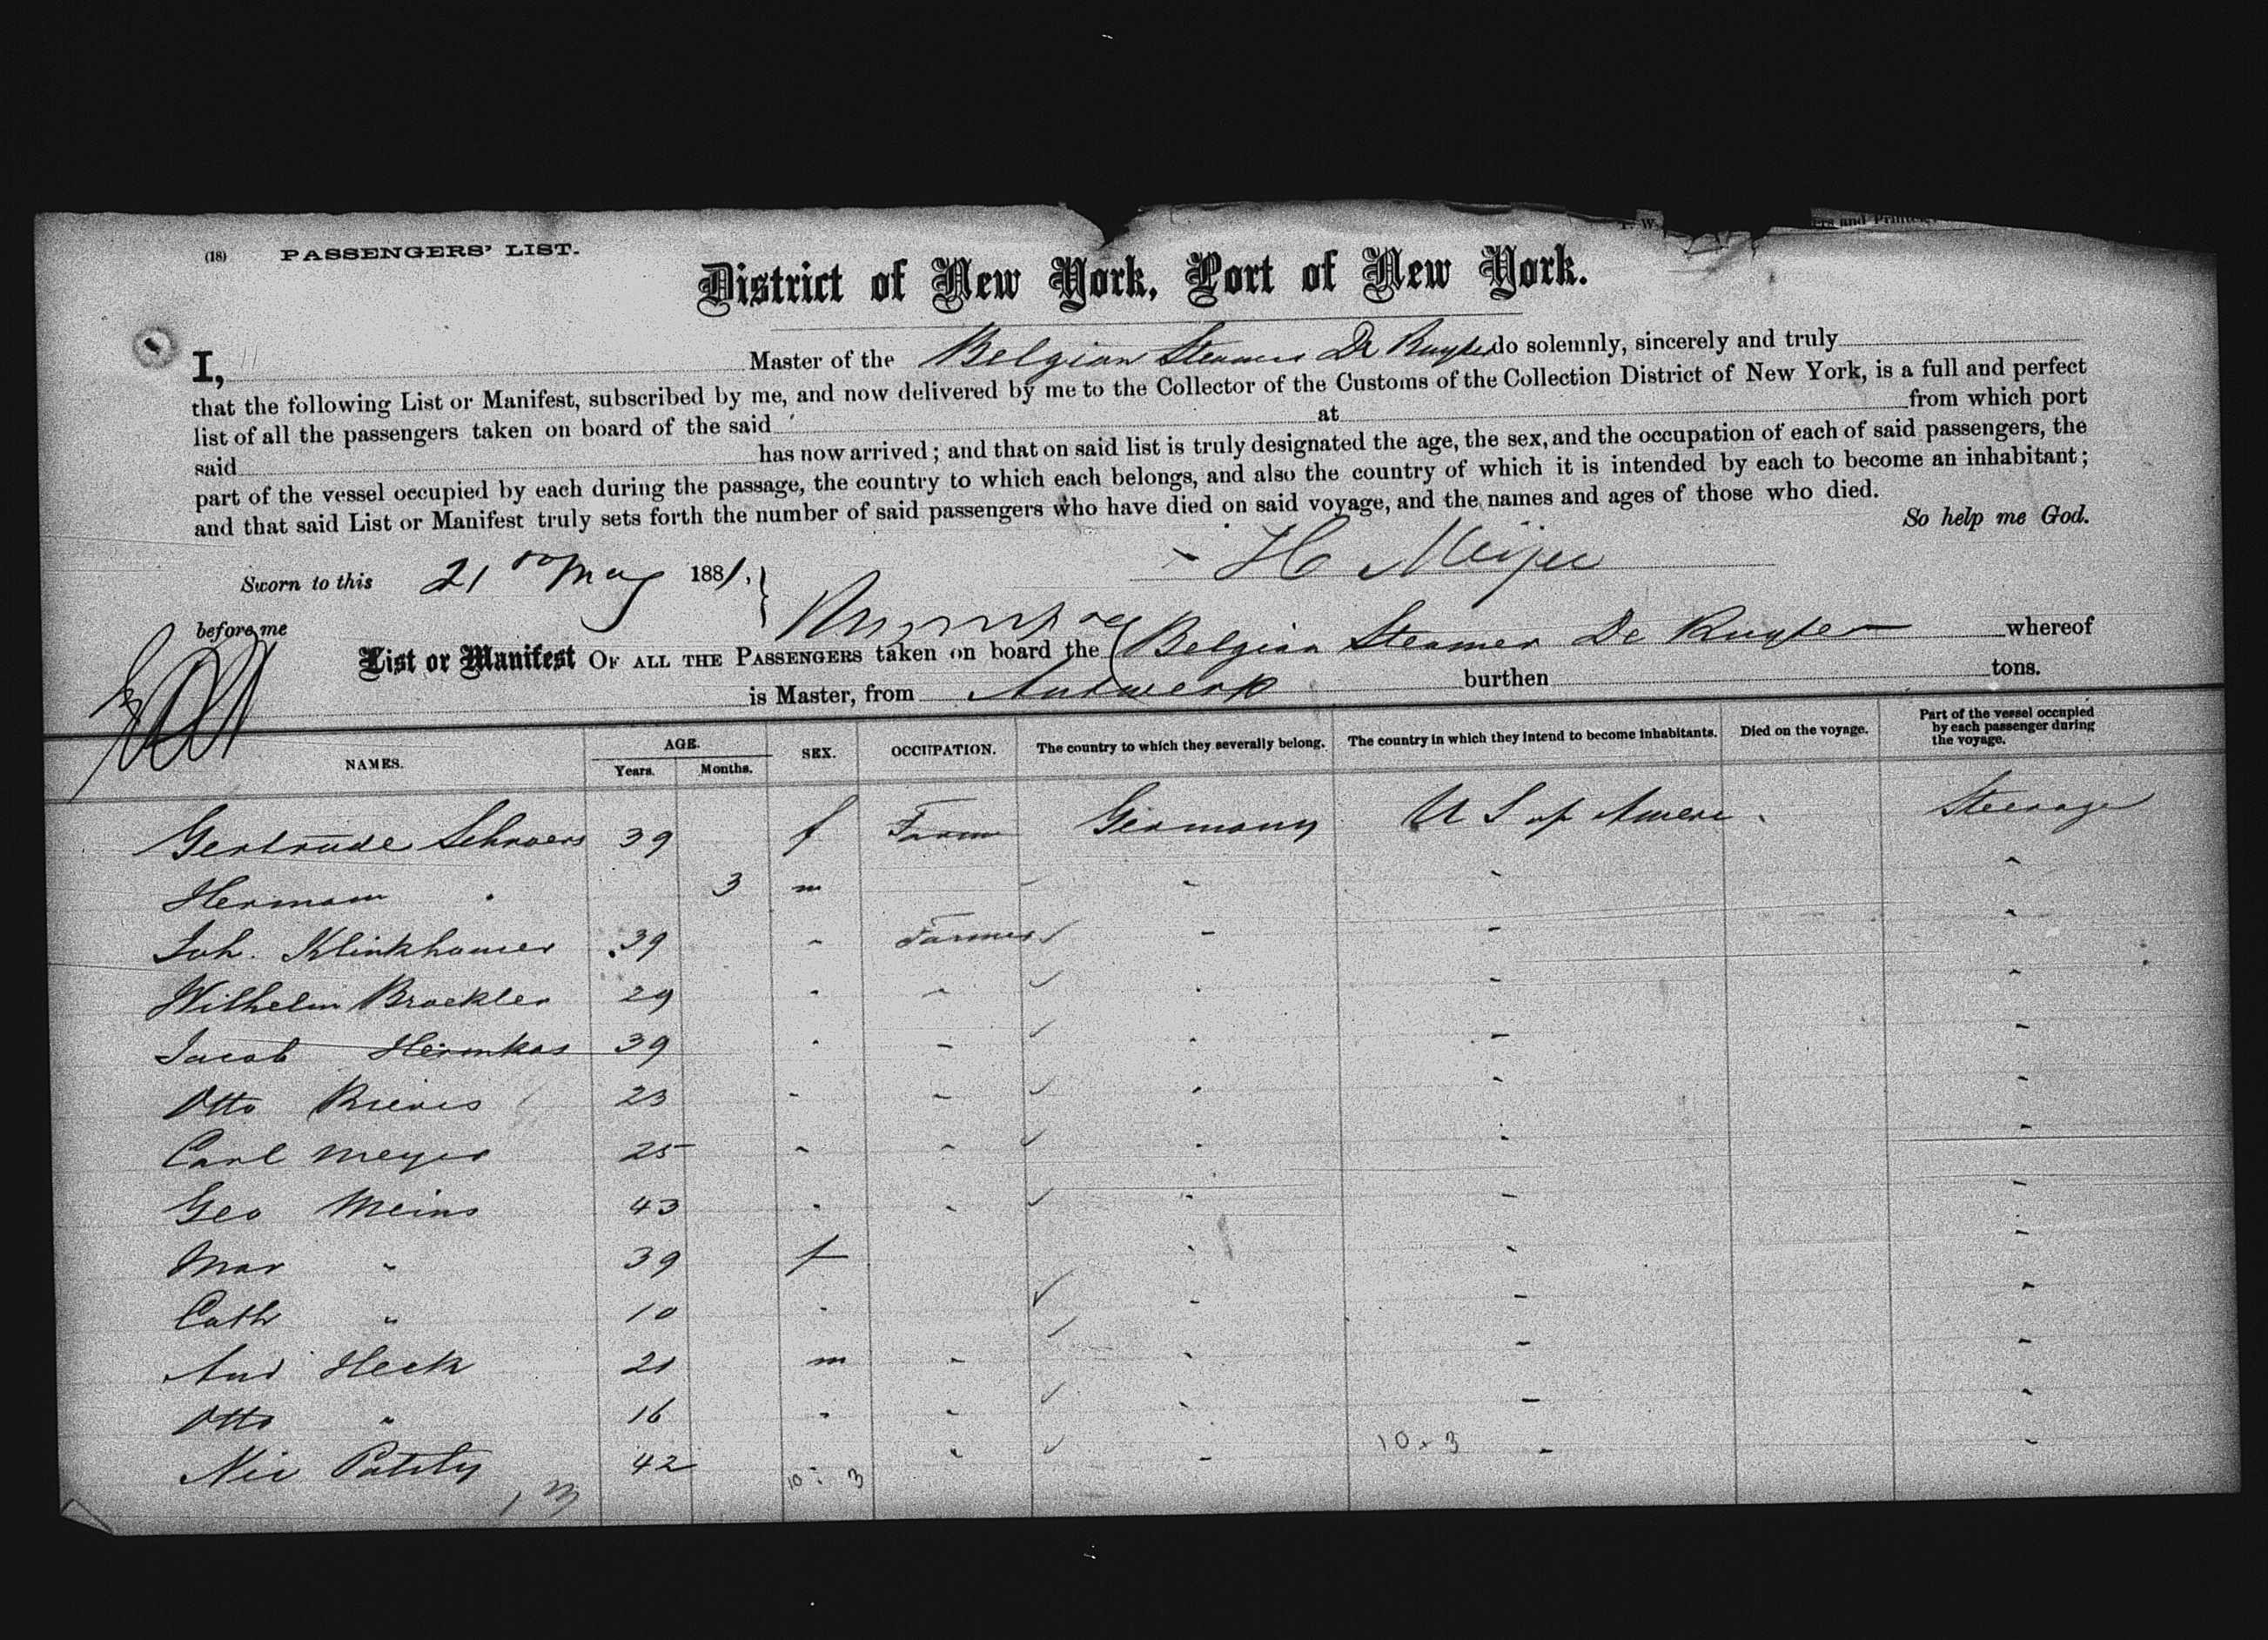 (18) PASSENGERS' LIST.
District of New York, Port of New York.
I, Master of the Belgian Steamer De Ruyter do solemnly, sincerely and truly
that the following List or Manifest, subscribed by me, and now delivered by me to the Collector of the Customs of the Collection District of New York, is a full and perfect
list of all the passengers taken on board of the said at from which port
said has now arrived; and that on said list is truly designated the age, the sex, and the occupation of each of said passengers, the
part of the vessel occupied by each during the passage, the country to which each belongs, and also the country of which it is intended by each to become an inhabitant;
and that said List or Manifest truly sets forth the number of said passengers who have died on said voyage, and the names and ages of those who died.
So help me God.
Sworn to this 21 May 1881, H Meijer
before me
List or Manifest OF ALL THE PASSENGERS taken on board the Belgian Steamer De Ruyter whereof
is Master, from Antwerp burthen tons.
NAMES. AGE. Years. Months. SEX. OCCUPATION. The country to which they severally belong. The country in which they intend to become inhabitants. Died on the voyage. Part of the vessel occupied by each passenger during the voyage.
Gertrude Schroers 39 f Farm Germany U S of Amere Steerage
Hermann " 3 m " " "
Joh. Klinkhamer 39 " Farmer " " "
Wilhelm Brockler 29 " " " " "
Jacob Hermkas 39 " " " " "
Otto 23 " " " " "
Carl Meyer 25 " " " " "
Geo Meins 43 " " " " "
Mar " 39 f " " "
Cath " 10 " " " "
And Heck 21 m " " " "
Otto " 16 " " " " "
Nic 42 " " " " "
13 10 : 3 10 + 3